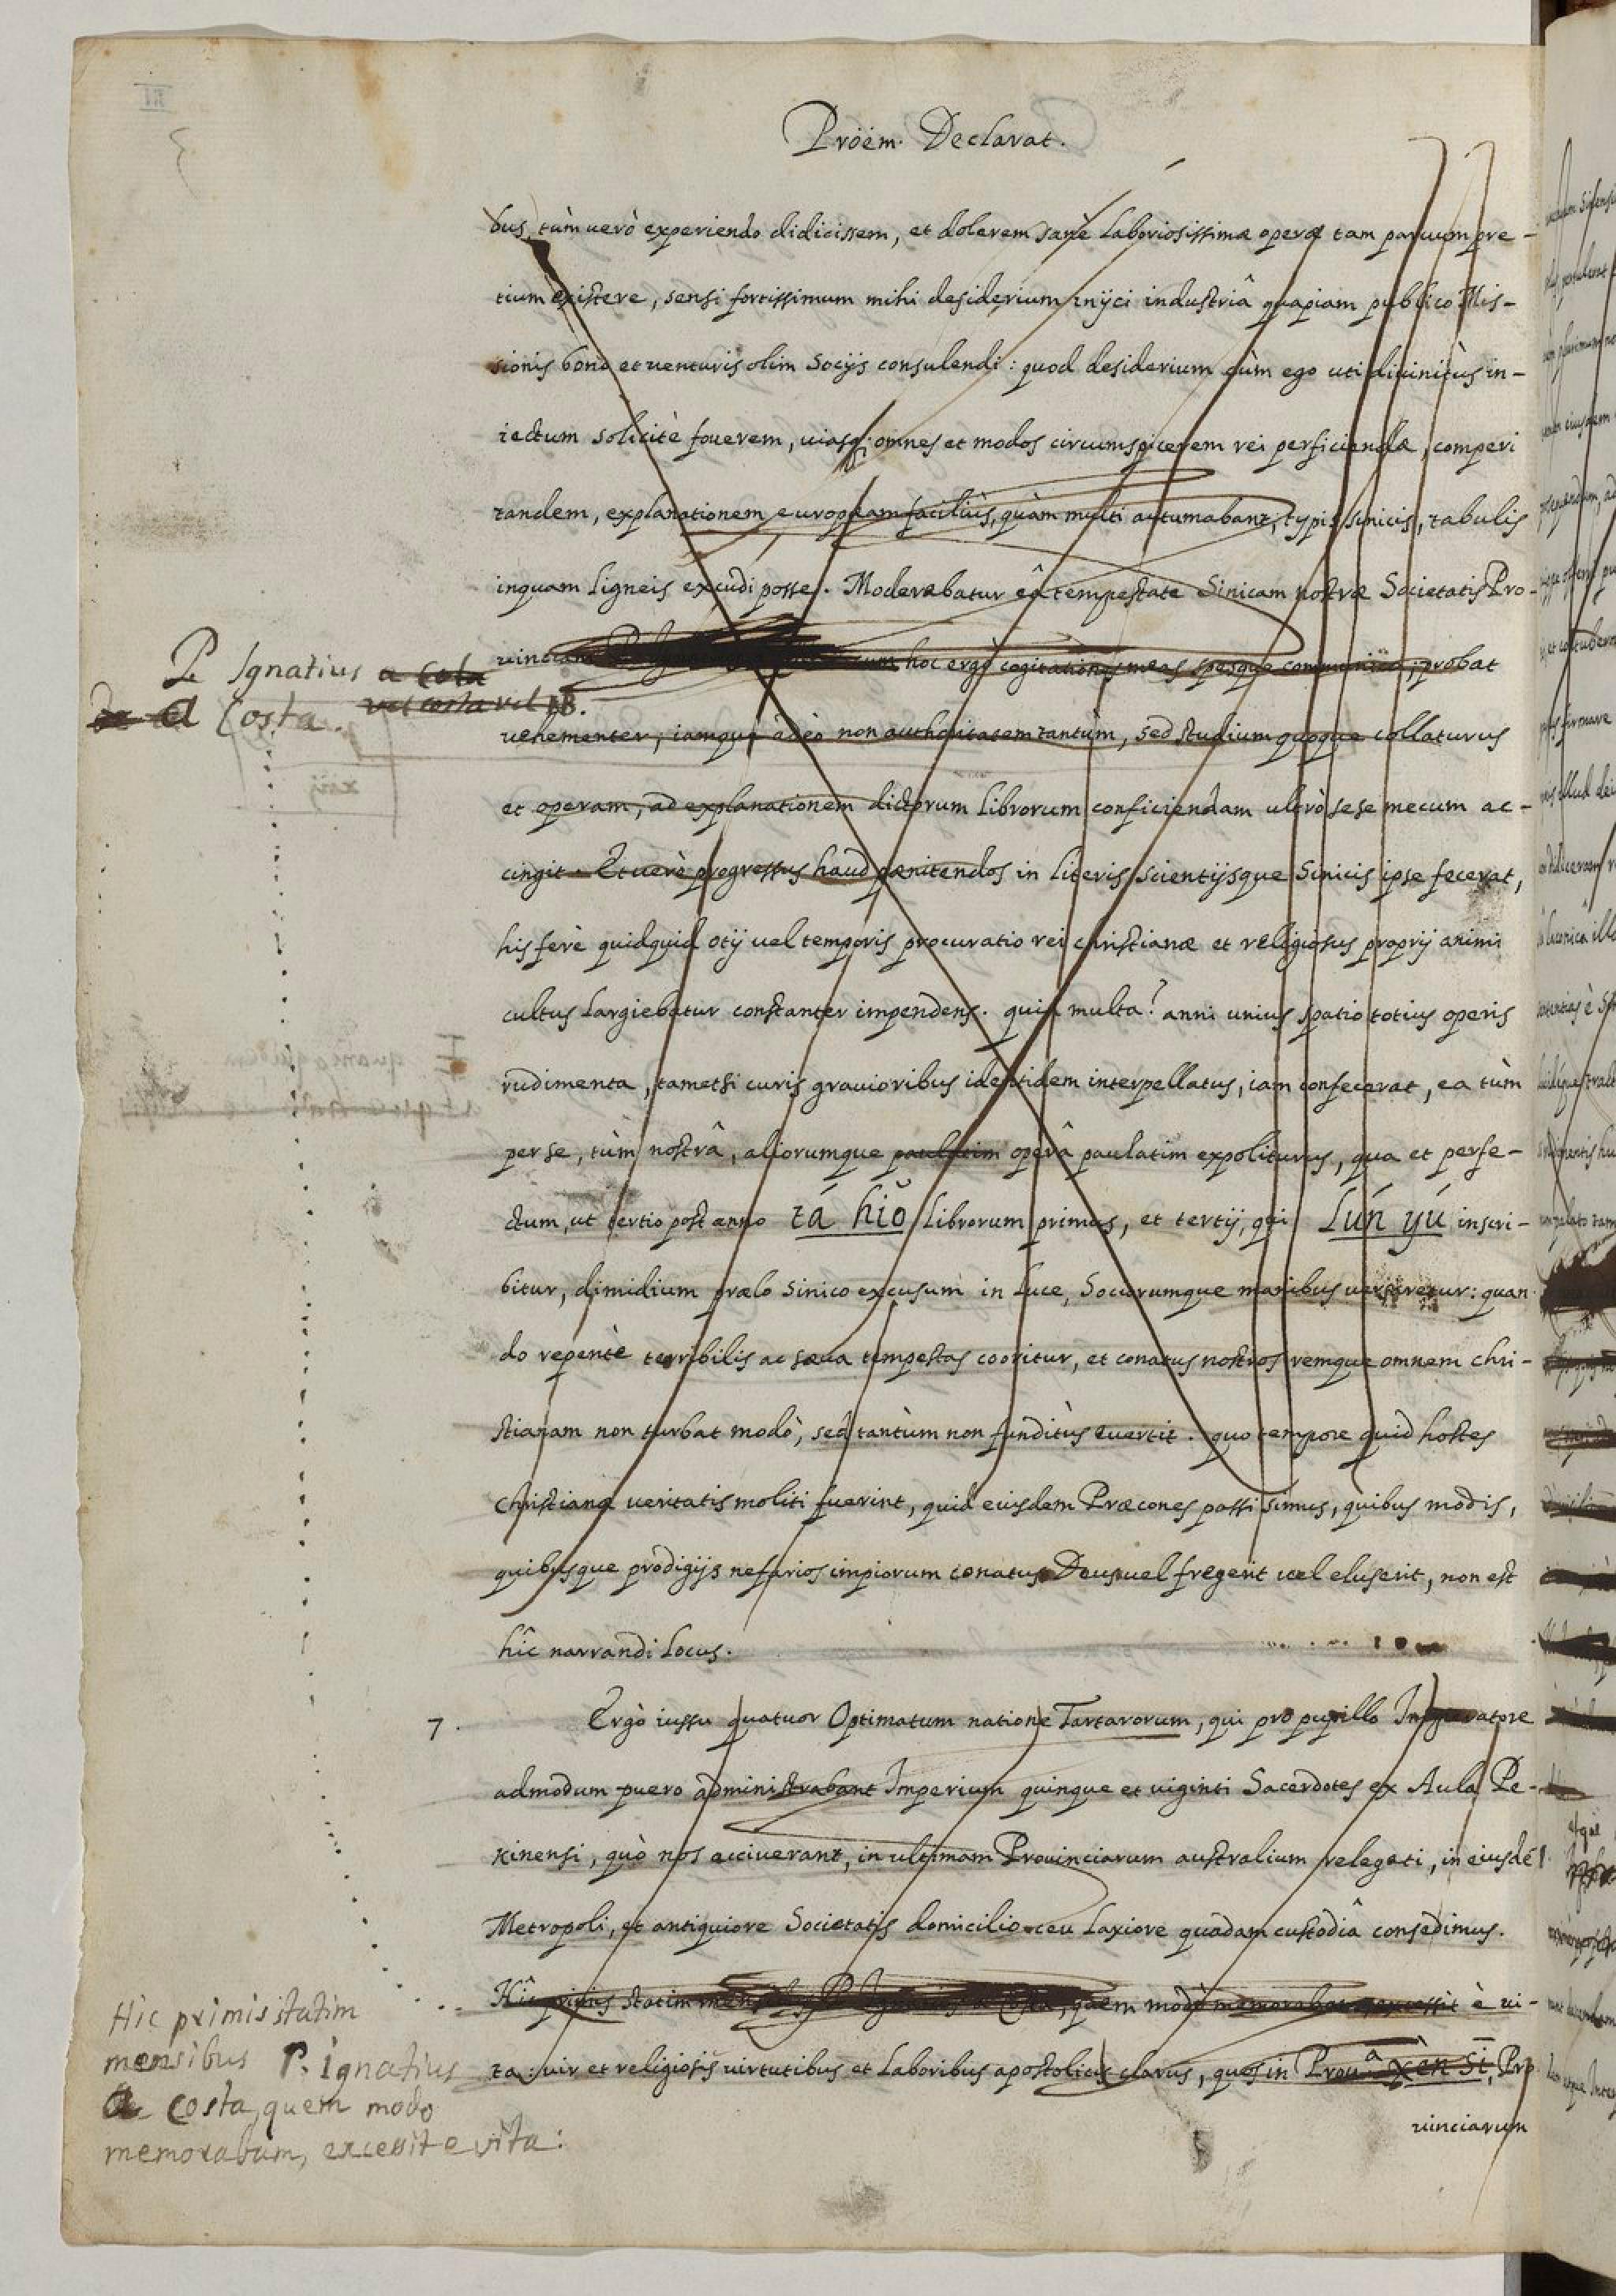 Pröëm. Declarat.
bus, tùm uerò experiendo didicissem, et dolerem sanè laboriosissimæ operæ tam paruum pre-
tium existere, sensi fortissimum mihi desiderium inijci industriâ quapiam publico Mis-
sionis bono et uenturis olim Socijs consulendi: quod desiderium cùm ego uti diuinitùs in-
iectum solicitè fouerem, uiasq; omnes et modos circumspicerem rei perficiendæ, comperi
tandem, explanationem europæam faciliùs, quàm multi autumabant, typis sinicis, tabulis
inquam ligneis excudi posse. Moderabatur eâ tempestate Sinicam nostræ Societatis Pro-
uinciam cum hoc ergò cogitationes meas spesque communico; probat
P. Ignatius a Costa
de a Costa. vel costa vel
uehementer, iamque adeò non authoritatem tantùm, sed studium quoque collaturus
et operam, ad explanationem dictorum librorum conficiendam ultrò sese mecum ac-
cingit. Et uerò progressus haud pænitendos in literis scientijsque Sinicis ipse fecerat,
his ferè quidquid otij uel temporis procuratio rei christianæ et religiosus proprij animi
cultus largiebatur constanter impendens. quid multa? anni unius spatio totius operis
rudimenta, tametsi curis grauioribus identidem interpellatus, iam confecerat, ea tùm
per se, tùm nostrâ, aliorumque paulatim operâ paulatim expoliturus, qua et perfe-
ctum, ut tertio post anno tá hiŏ librorum primus, et tertij, qui Lún yú inscri-
bitur, dimidium prælo sinico excusum in luce, Sociorumque manibus uersaretur: quan-
do repentè terribilis ac sæua tempestas cooritur, et conatus nostros remque omnem chri-
stianam non turbat modò, sed tantùm non funditùs euertit. quo tempore quid hostes
christianæ ueritatis moliti fuerint, quid eiusdem Præcones passi simus, quibus modis,
quibusque prodigijs nefarios impiorum conatus Deus uel fregerit uel eluserit, non est
hîc narrandi locus.
7. Ergò iussu quatuor Optimatum natione Tartarorum, qui pro pupillo Imperatore
admodum puero administrabant Imperium quinque et uiginti Sacerdotes ex Aula Pe-
kinensi, quò nos acciuerant, in ultimam Prouinciarum australium relegati, in eiusdē
Metropoli, et antiquiore Societatis domicilio ceu laxiore quadam custodiâ consedimus.
Hîc primis statim mensibus P. Ignatius a Costa, quem modò memorabam, excessit è ui-
ta: uir et religiosis uirtutibus et laboribus apostolicis clarus, quos in Prouᵃ xèn sī, Pro
uinciarum
Hic primis statim
mensibus P. ignatius
a costa, quem modo
memorabam, excessit e vita: